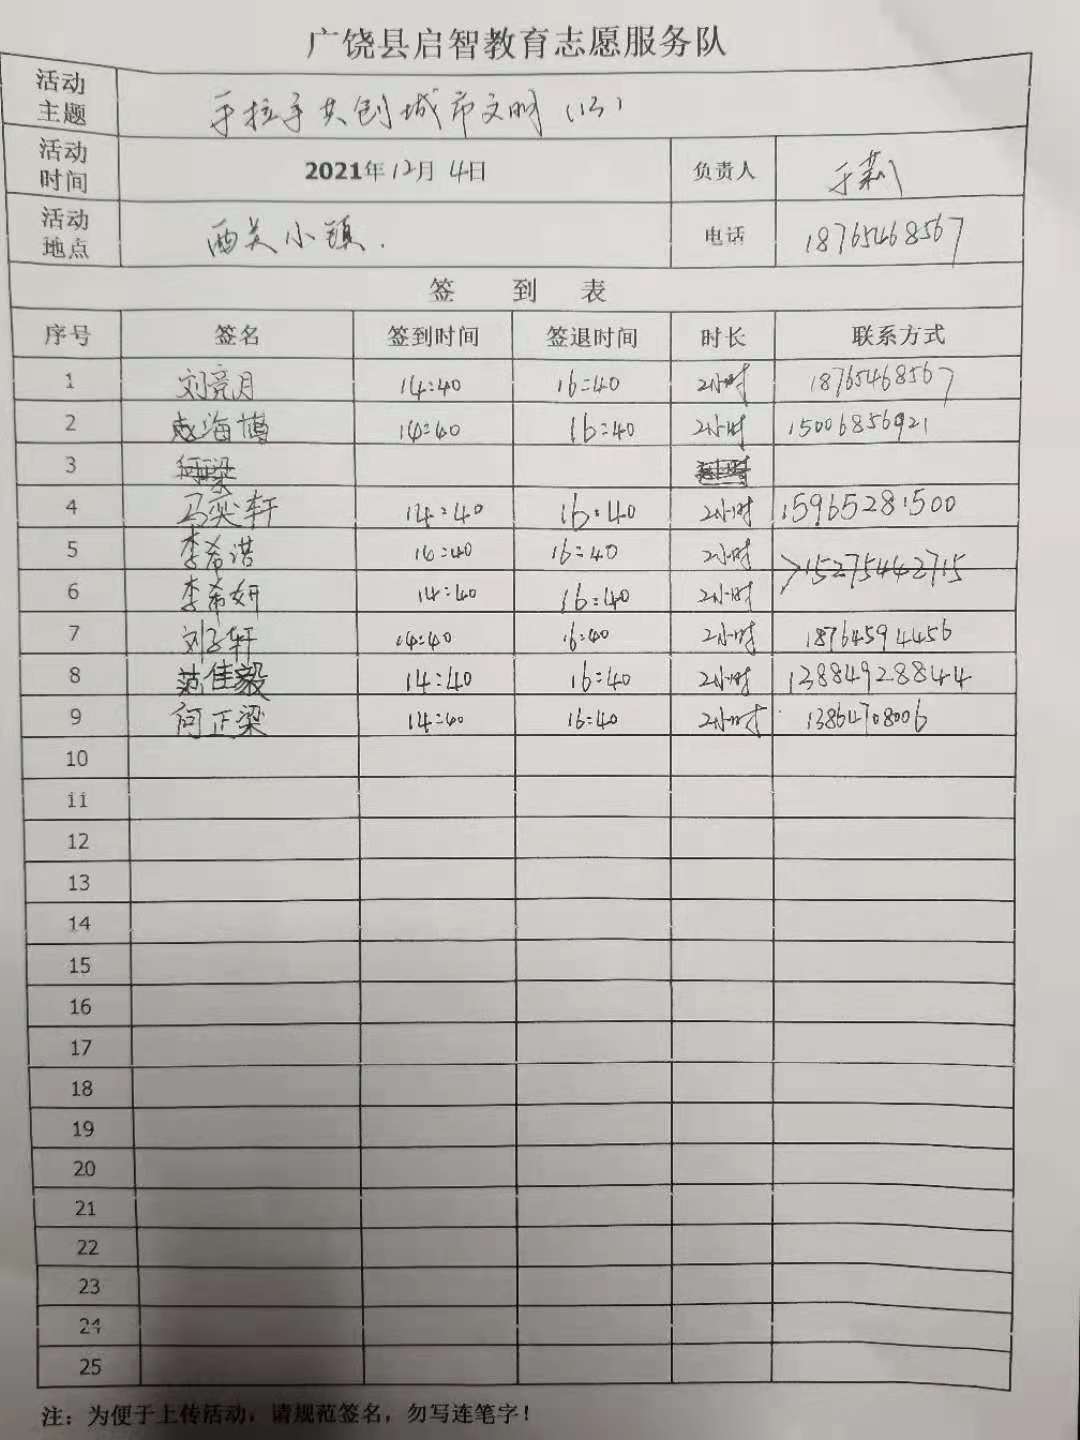 广饶县启智教育志愿服务队
活动主题 手拉手共创城市文明(13)
活动时间 2021年12月4日 负责人 于莉
活动地点 西关小镇. 电话 18765468567
签到表
序号 签名 签到时间 签退时间 时长 联系方式
1 刘亮月 14:40 16:40 2小时 18765468567
2 赵海博 14:40 16:40 2小时 15006856921
3
4 马奕轩 14:40 16:40 2小时 15965281500
5 李希诺 16:40 16:40 2小时 15275442715
6 李希妍 14:40 16:40 2小时
7 刘子轩 14:40 16:40 2小时 18764594456
8 范佳毅 14:40 16:40 2小时 13884928844
9 何正梁 14:40 16:40 2小时 13864708006
10
11
12
13
14
15
16
17
18
19
20
21
22
23
24
25
注：为便于上传活动，请规范签名，勿写连笔字！